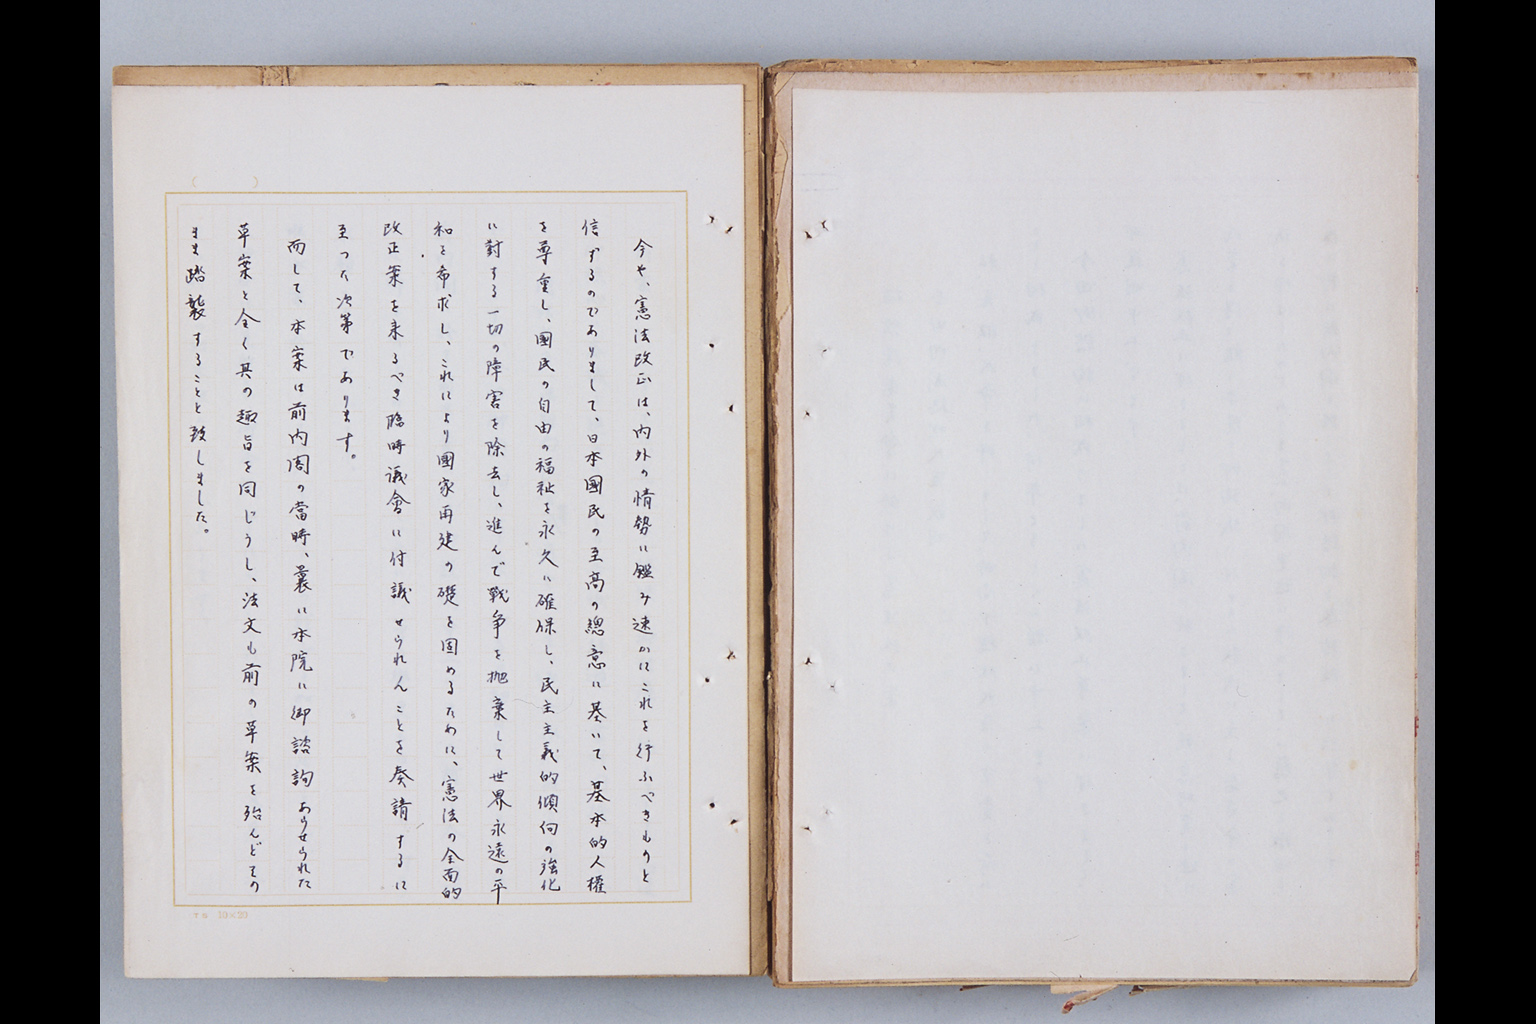 今や、憲法改正は、内外の情勢に鑑み速かにこれを行ふべきものと
信ずるのでありまして、日本國民の至高の總意に基いて、基本的人權
を尊重し、國民の自由の福祉を永久に確保し、民主主義的傾向の強化
に對する一切の障害を除去し、進んで戰争を抛棄して世界永遠の平
和を希求し、これにより國家再建の礎を固めるために、憲法の全面的
改正案を来るべき臨時議會に付議せられんことを奏請するに
至つた次第であります。
而して、本案は前内閣の當時、曩に本院に御諮詢あらせられた
草案と全く其の趣旨を同じうし、法文も前の草案を殆んどその
まま踏襲することと致しました。
TS 10×20